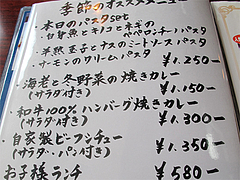 季節のオススメメニュー
・本日のパスタset
・白身魚とキノコと木の芽のペペロンチーノパスタ
・半熟玉子とナスのミートソースパスタ
・サーモンのクリームパスタ
¥1.250-
・海老と冬野菜の焼きカレー
(サラダ付き) ¥1.150-
・和牛100%ハンバーグ焼きカレー
(サラダ付き) ¥1.300-
・自家製ビーフシチュー
(サラダ・パン付き) ¥1.350-
お子様ランチ ¥580-